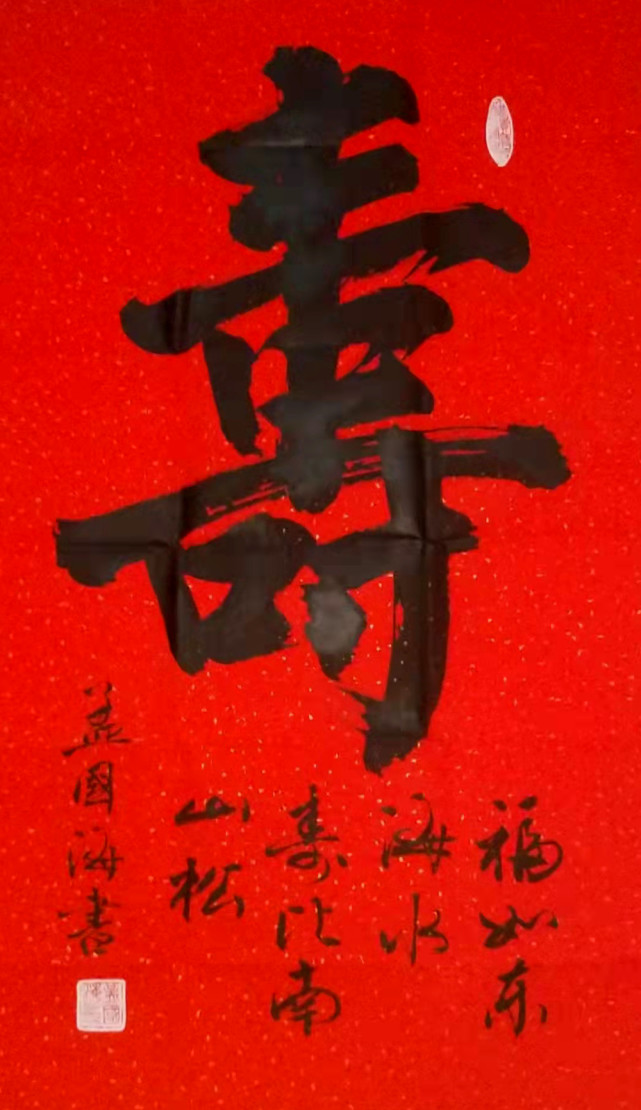 壽
福如东
海水
寿比南
山松
國海書